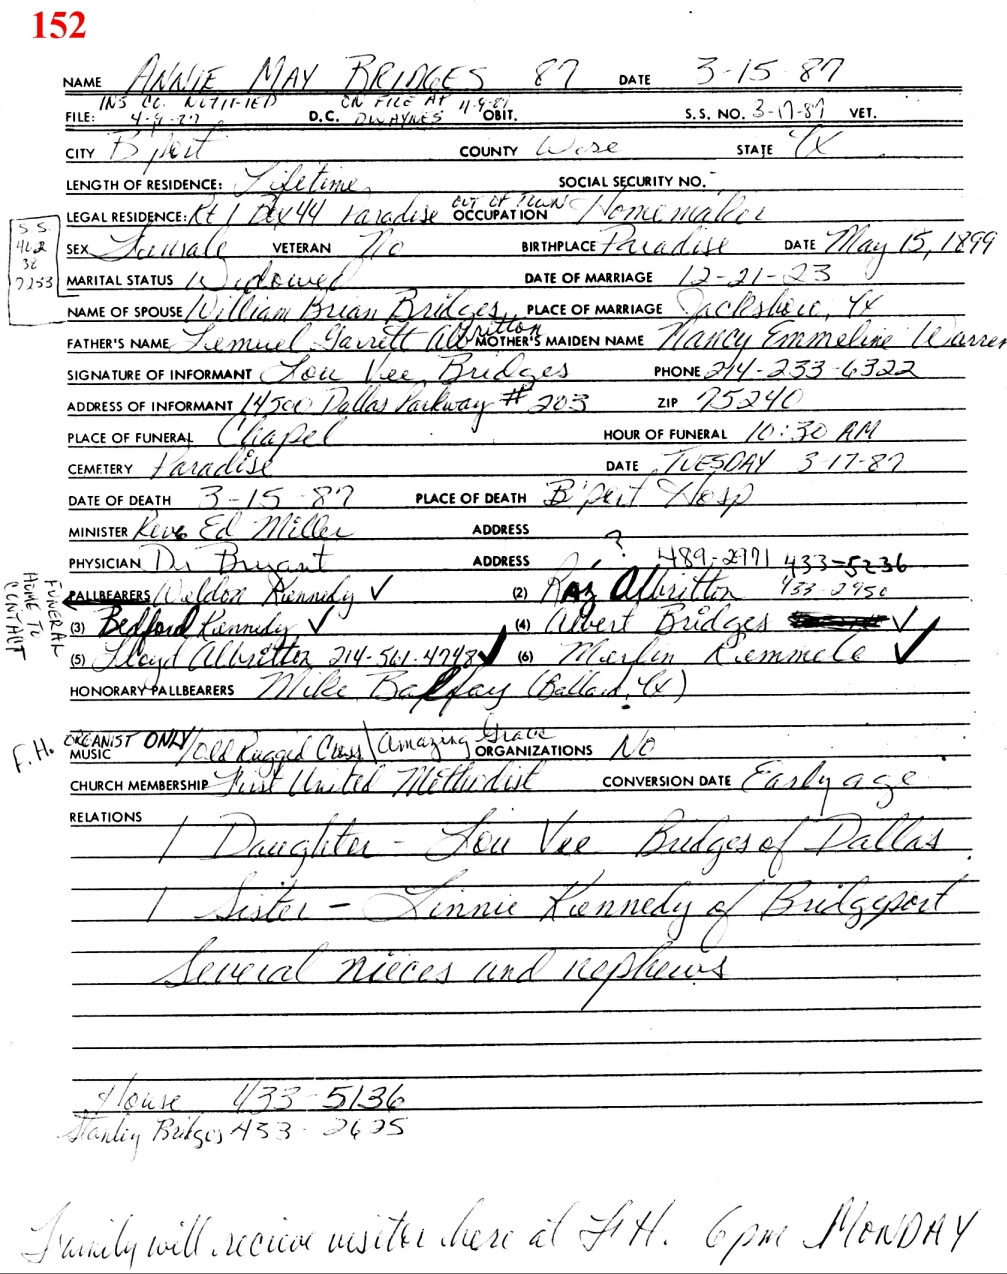 152
NAME ANNIE MAY BRIDGES 87 DATE 3-15-87
INS CO. NOTIFIED ON FILE AT 4-9-87
FILE: 4-9-87 D.C. DWAYNES OBIT. S.S. NO. 3-17-87 VET.
CITY B'port COUNTY Wise STATE Tx
LENGTH OF RESIDENCE: Lifetime SOCIAL SECURITY NO. -
LEGAL RESIDENCE: Rt 1 Box 44 Paradise OUT OF TOWN OCCUPATION Homemaker
S.S.
462
38
7253
SEX Female VETERAN No BIRTHPLACE Paradise DATE May 15, 1899
MARITAL STATUS Widowed DATE OF MARRIAGE 12-21-23
NAME OF SPOUSE William Brian Bridges PLACE OF MARRIAGE Jacksboro, Tx
FATHER'S NAME Lemuel Garrett Albritton MOTHER'S MAIDEN NAME Nancy Emmeline Warren
SIGNATURE OF INFORMANT Lou Vee Bridges PHONE 214-233-6322
ADDRESS OF INFORMANT 14500 Dallas Parkway # 203 ZIP 75240
PLACE OF FUNERAL Chapel HOUR OF FUNERAL 10:30 AM
CEMETERY Paradise DATE TUESDAY 3-17-87
DATE OF DEATH 3-15-87 PLACE OF DEATH B'port Hosp
MINISTER Rev. Ed Miller ADDRESS
?
PHYSICIAN Dr Bryant ADDRESS 489-2971 433-5236
FUNERAL HOME TO CONTACT
PALLBEARERS Weldon Kennedy ✓ (2) Roy Albritton 433-2950
(3) Bedford Kennedy ✓ (4) Albert Bridges ✓
(5) Lloyd Albritton 214-561-4748 ✓ (6) Merlin Kemmele ✓
HONORARY PALLBEARERS Mike (Ballard, Tx)
F.H. ORGANIST ONLY
MUSIC / Old Rugged Cross \ Amazing Grace ORGANIZATIONS No
CHURCH MEMBERSHIP First United Methodist CONVERSION DATE Early age
RELATIONS
1 Daughter - Lou Vee Bridges of Dallas
1 Sister - Linnie Kennedy of Bridgeport
Several nieces and nephews
House 433-5136
Stanley Bridges 433-2625
Family will recieve visitor here at F H. 6 pm MONDAY